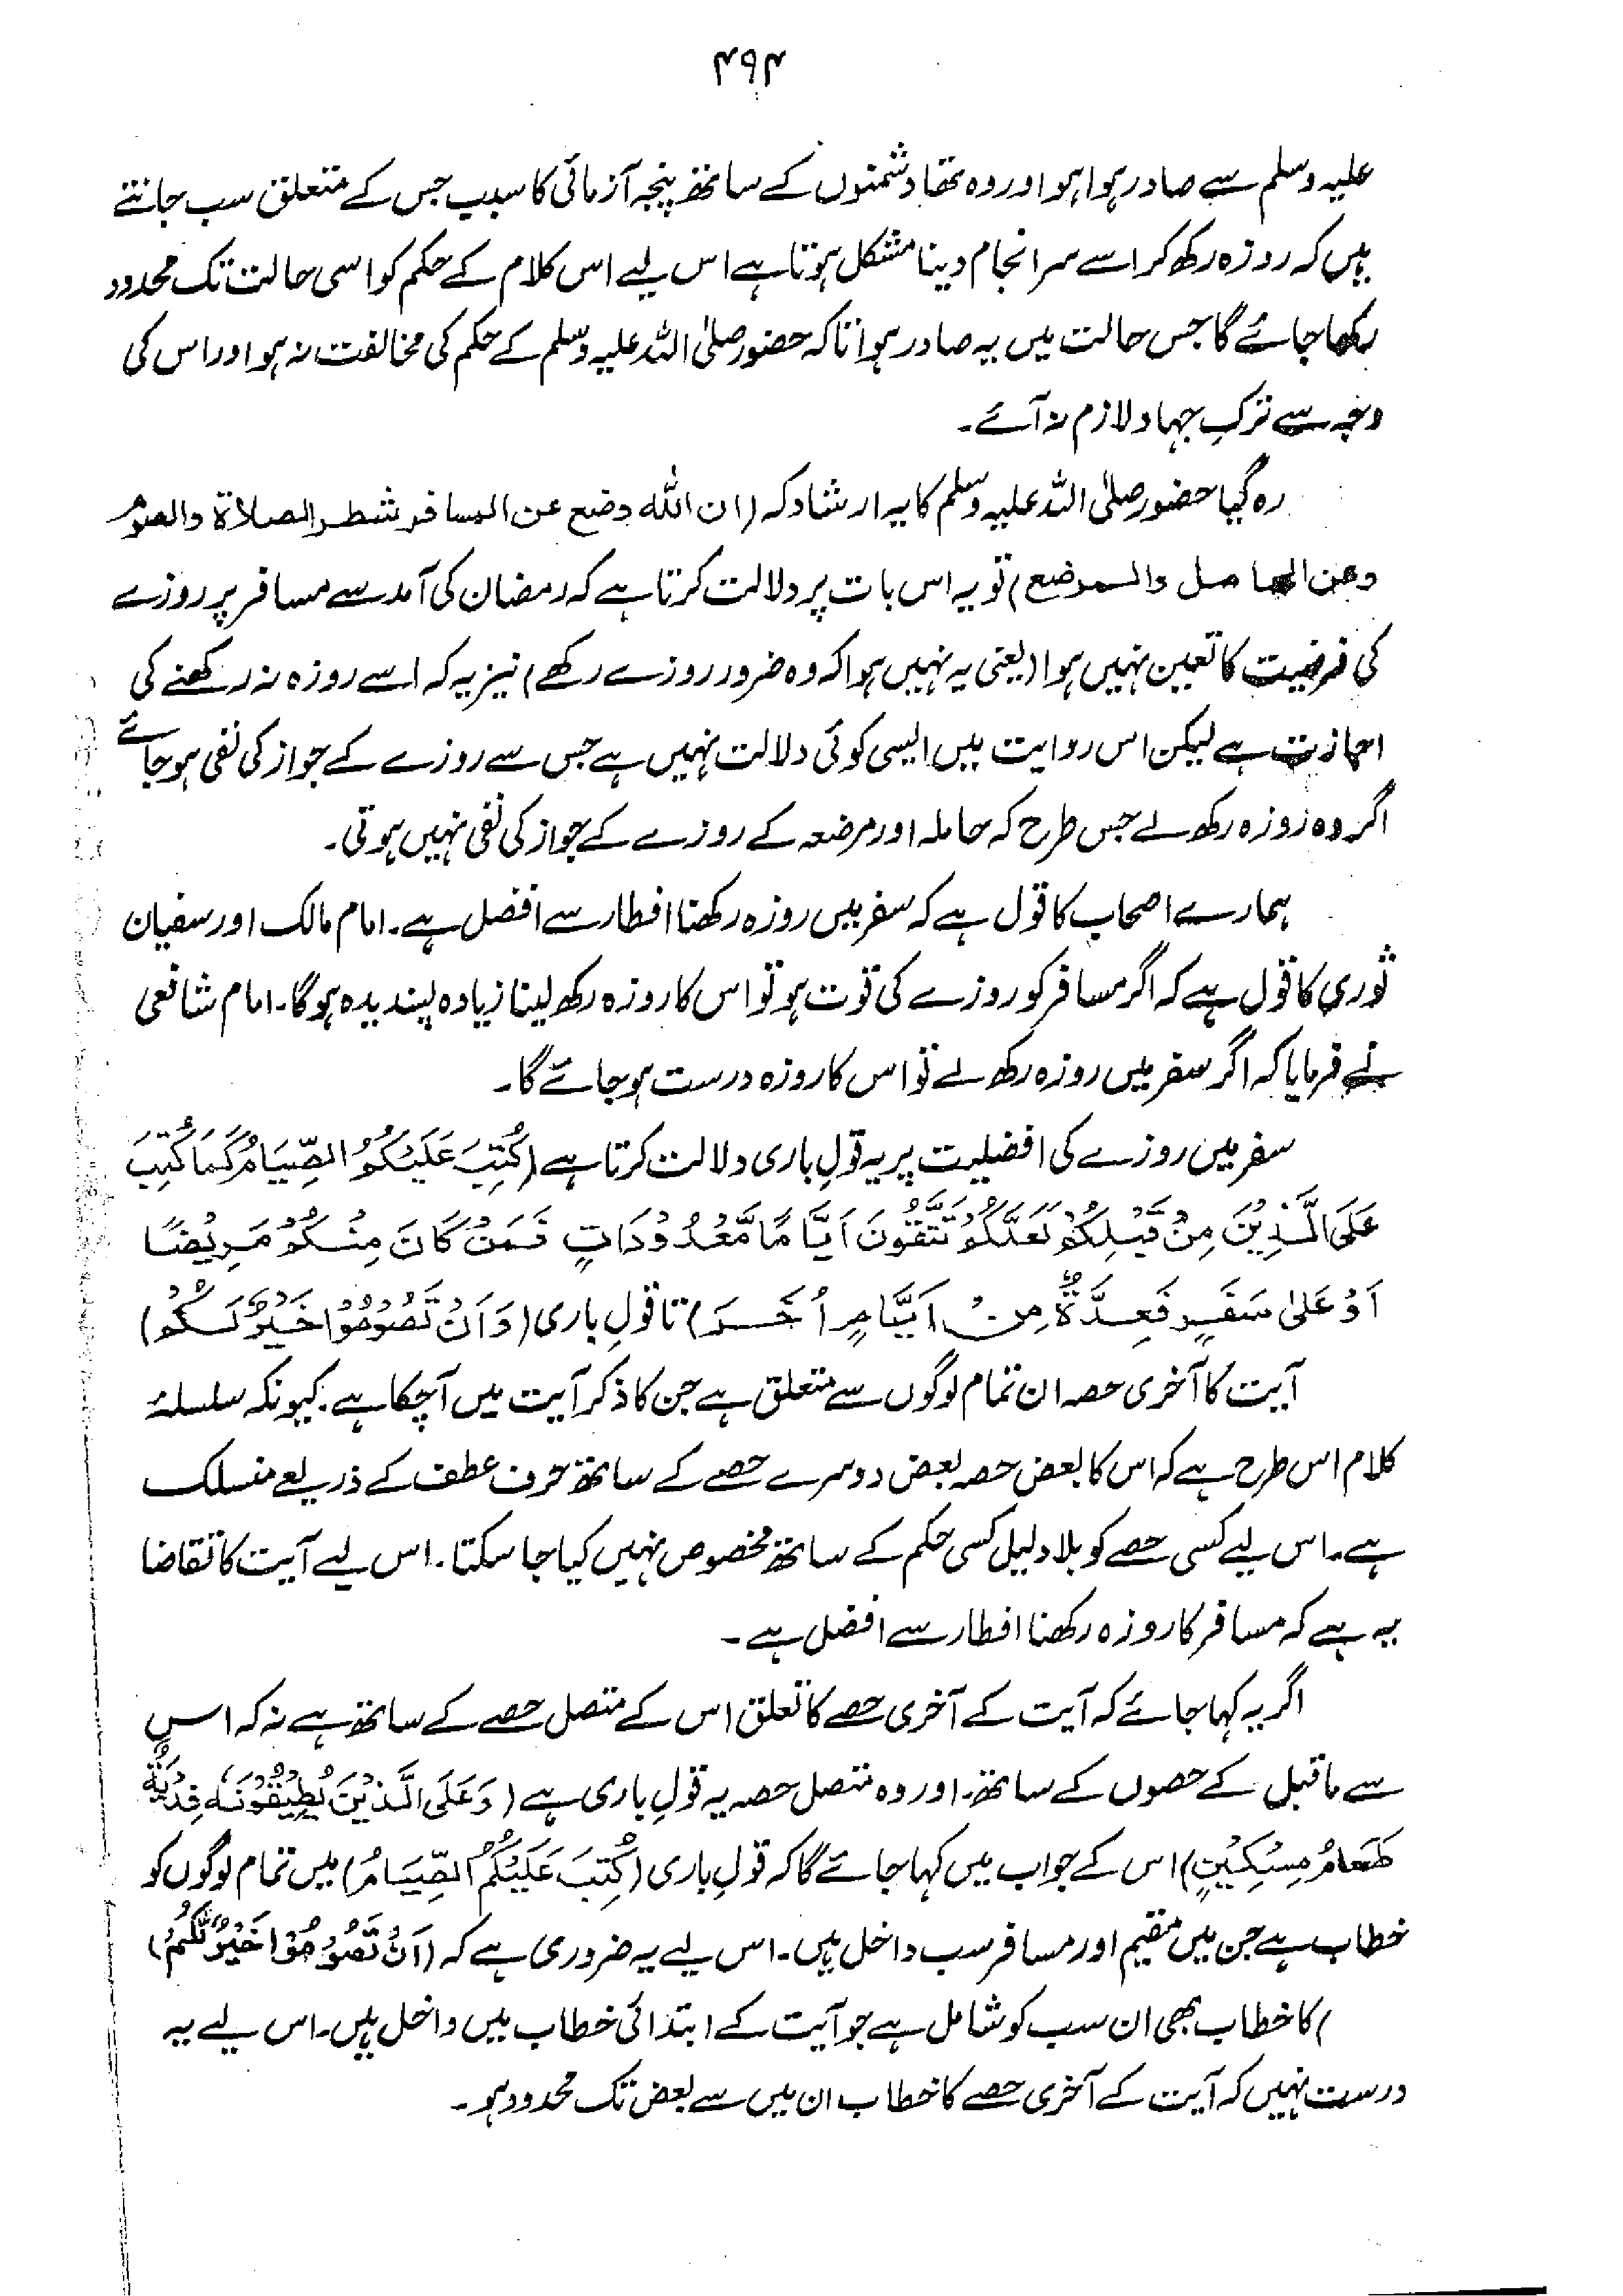 ۴۹۴
علیہ وسلم سے صادر ہوا ہو اور وہ تھا دشمنوں کے ساتھ پنجہ آزمائی کا سبب جس کے متعلق سب جانتے
ہیں کہ روزہ رکھ کر اسے سرانجام دینا مشکل ہوتا ہے اس لیے اس کلام کے حکم کو اسی حالت تک محدود
رکھا جائے گا جس حالت میں یہ صادر ہوا تاکہ حضور صلی اللہ علیہ وسلم کے حکم کی مخالفت نہ ہو اور اس کی
وجہ سے ترکِ جہاد لازم نہ آئے۔
رہ گیا حضور صلی اللہ علیہ وسلم کا یہ ارشاد کہ (ان الله وضع عن المسافر شطر الصلاة والصوم
وعن الحامل والمرضع) تو یہ اس بات پر دلالت کرتا ہے کہ رمضان کی آمد سے مسافر پر روزے
کی فرضیت کا تعین نہیں ہوا (یعنی یہ نہیں ہوا کہ وہ ضرور روزے رکھے) نیز یہ کہ اسے روزہ نہ رکھنے کی
اجازت ہے لیکن اس روایت میں ایسی کوئی دلالت نہیں ہے جس سے روزے کے جواز کی نفی ہو جائے
اگر وہ روزہ رکھ لے جس طرح کہ حاملہ اور مرضعہ کے روزے کے جواز کی نفی نہیں ہوتی۔
ہمارے اصحاب کا قول ہے کہ سفر میں روزہ رکھنا افطار سے افضل ہے۔ امام مالک اور سفیان
ثوری کا قول ہے کہ اگر مسافر کو روزے کی قوت ہو تو اس کا روزہ رکھ لینا زیادہ پسندیدہ ہوگا۔ امام شافعی
نے فرمایا کہ اگر سفر میں روزہ رکھ لے تو اس کا روزہ درست ہو جائے گا۔
سفر میں روزے کی افضلیت پر یہ قولِ باری دلالت کرتا ہے (كُتِبَ عَلَيْكُمُ الصِّيَامُ كَمَا كُتِبَ
عَلَى الَّذِيْنَ مِنْ قَبْلِكُمْ لَعَلَّكُمْ تَتَّقُوْنَ اَيَّامًا مَّعْدُوْدَاتٍ فَمَنْ كَانَ مِنْكُمْ مَرِيْضًا
اَوْ عَلىٰ سَفَرٍ فَعِدَّةٌ مِنْ اَيَّامٍ اُخَرَ) تا قولِ باری (وَاَنْ تَصُوْمُوْا خَيْرٌ لَّكُمْ)
آیت کا آخری حصہ ان تمام لوگوں سے متعلق ہے جن کا ذکر آیت میں آچکا ہے۔ کیونکہ سلسلۂ
کلام اس طرح ہے کہ اس کا بعض حصہ بعض دوسرے حصے کے ساتھ حرف عطف کے ذریعے منسلک
ہے۔ اس لیے کسی حصے کو بلا دلیل کسی حکم کے ساتھ مخصوص نہیں کیا جا سکتا۔ اس لیے آیت کا تقاضا
یہ ہے کہ مسافر کا روزہ رکھنا افطار سے افضل ہے۔
اگر یہ کہا جائے کہ آیت کے آخری حصے کا تعلق اس کے متصل حصے کے ساتھ ہے نہ کہ اس
سے ماقبل کے حصوں کے ساتھ۔ اور وہ متصل حصہ یہ قولِ باری ہے (وَعَلَى الَّذِيْنَ يُطِيْقُوْنَهٗ فِدْيَةٌ
طَعَامُ مِسْكِيْنٍ) اس کے جواب میں کہا جائے گا کہ قولِ باری (كُتِبَ عَلَيْكُمُ الصِّيَامُ) میں تمام لوگوں کو
خطاب ہے جن میں مقیم اور مسافر سب داخل ہیں۔ اس لیے یہ ضروری ہے کہ (اَنْ تَصُوْمُوْا خَيْرٌ لَّكُمْ)
) کا خطاب بھی ان سب کو شامل ہے جو آیت کے ابتدائی خطاب میں داخل ہیں۔ اس لیے یہ
درست نہیں کہ آیت کے آخری حصے کا خطاب ان میں سے بعض تک محدود ہو۔